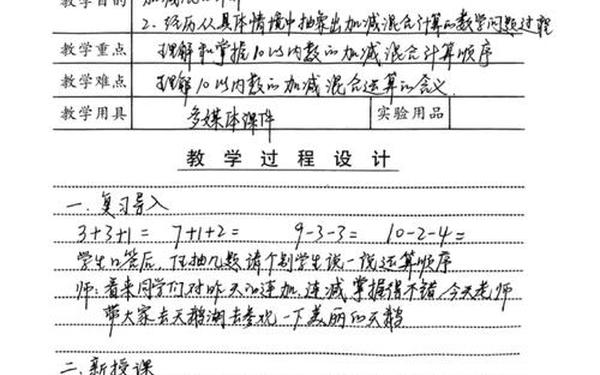 教学目的
2. 经历从具体情境中抽象出加减混合计算的数学问题过程
教学重点 理解和掌握10以内数的加减混合计算顺序
教学难点 理解10以内数的加减混合运算的含义
教学用具 多媒体课件 实验用品
教学过程设计
一. 复习导入
3+3+1= 7+1+2= 9-3-3= 10-2-4=
学生口答后, 任抽几题请个别学生说一说运算顺序
师: 看来同学们对昨天的连加, 连减掌握得不错, 今天老师
带大家去天鹅湖去参观一下美丽的天鹅
二. 新授课